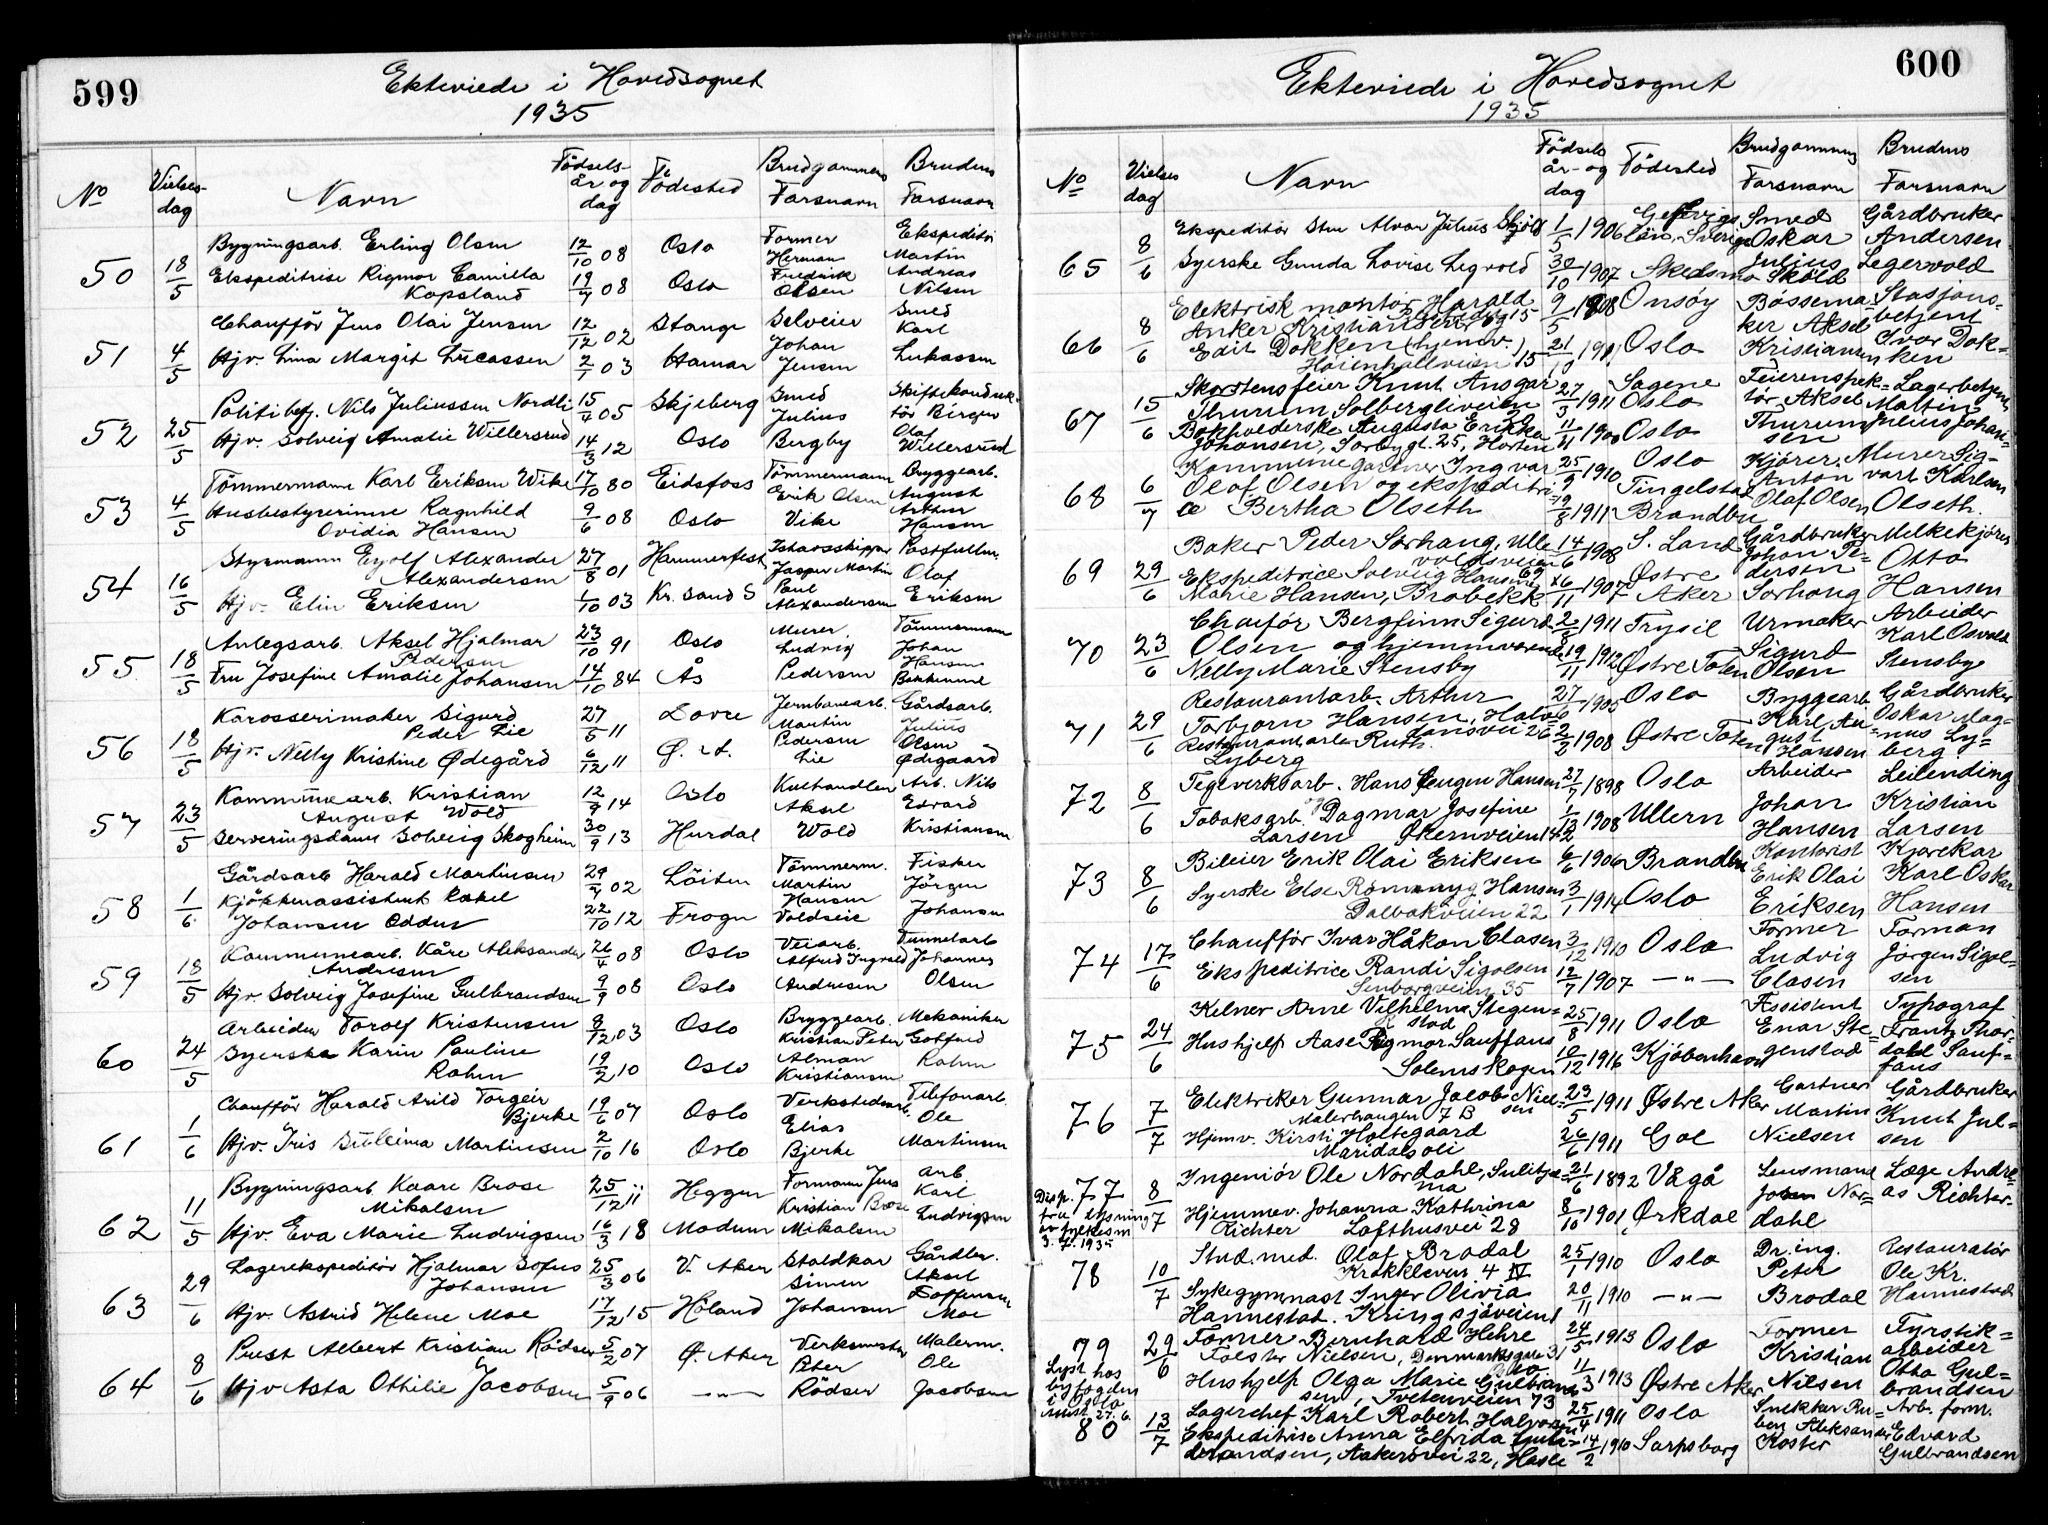 599
Ekteviede i Hovedsognet
1935
No
Vielses-
dag
Navn
Födsels-
år og
dag
Födested
Brudgommens
Farsnavn
Brudens
Farsnavn
50 18/5 Bygningsarb. Erling Olsen 12/10 08 Oslo Former Herman Fredrik Olsen Ekspeditör Martin Andreas Nilsen
Ekspeditrise Rigmor Camilla Kopsland 19/7 08 Oslo
51 4/5 Chauffør Jens Olai Jensen 12/12 02 Stange Selveier Johan Jensen Smed Karl Lukassen
Hjv. Lina Margit Lucassen 2/1 03 Hamar
52 25/5 Politibetj. Nils Juliussen Nordli 15/4 05 Skjeberg Smed Julius Bergby Skiftekonduk-tör Birger Olaf Willersrud
Hjv. Solveig Amalie Willersrud 14/3 12 Oslo
53 4/5 Tömmermann Karl Eriksen Wike 17/10 80 Eidsfoss Tömmermann Erik Olsen Vike Bryggearb. August Arthur Hansen
Husbestyrerinne Ragnhild Ovidia Hansen 9/6 08 Oslo
54 16/5 Styrmann Eyolf Alexander Alexandersen 27/8 01 Hammerfest Ishavsskipper Jasper Martin Paul Alexandersen Postfullm. Olaf Eriksen
Hjv. Elin Eriksen 1/10 03 Kr. sand S
55 18/5 Anlegsarb. Aksel Hjalmar Pedersen 23/10 91 Oslo Murer Ludvig Pedersen Tömmermann Johan Hansen Bakkemoe
Fru Josefine Amalie Johansen 14/10 84 Ås
56 18/5 Karosserimaker Sigurd Peder Lie 27/5 11 Dovre Jernbanearb. Martin Pedersen Lie Gårdsarb. Julius Olsen Ödegaard
Hjv. Nelly Kristine Ødegård 6/12 11 Ø. A.
57 23/5 Kommunearb. Kristian August Wold 12/9 14 Oslo Kulhandler Aksel Wold Arb. Nils Edvard Kristiansen
Serveringsdame Solveig Skogheim 30/9 13 Hurdal
58 1/6 Gårdsarb Harald Martinsen 29/7 02 Löiten Tömmerm. Martin Hansen Voldseie Fisker Jörgen Johansen
Kjökkenassistent Rakel Johansen Odden 22/10 12 Frogn
59 18/5 Kommunearb. Kåre Aleksander Andresen 26/4 08 Oslo Veiarb. Alfred Ingvald Andresen Tunnelarb Johannes Olsen
Hjv. Solveig Josefine Gulbrandsen 9/9 08 Oslo
60 24/5 Arbeider Torolf Kristensen 8/12 03 Oslo Bryggearb. Kristian Peter Alman Kristiansen Mekaniker Gotfred Rohm
Syerske Karin Pauline Rohm 19/2 10 Oslo
61 1/6 Chauffør Harald Arild Torgeir Bjerke 19/6 07 Oslo Verkstedarb. Elias Bjerke Telefonarb. Ole Martinsen
Hjv. Iris Sulleima Martinsen 2/10 16 Oslo
62 11/5 Bygningsarb. Kaare Brose Mikalsen 25/12 11 Heggen Formann Jens Kristian Brose Mikalsen arb Karl Ludvigsen
Hjv. Eva Marie Ludvigsen 16/3 18 Modum
63 29/6 Lagerekspeditör Hjalmar Sofus Johansen 25/3 06 V. Aker Staldkar Simen Johansen Gårdbr. Aksel Toffensen Moe
Hjv. Astrid Helene Moe 17/12 15 Höland
64 8/6 Prest Albert Kristian Rödser 5/2 07 Ö. Aker Verksmester Peter Rödser Malerm. Ole Jacobsen
Hjv Asta Othilie Jacobsen 5/9 06 — " —
600
Ekteviede i Hovedsognet
1935
No
Vielses
dag
Navn
Födsels
år- og
dag
Födested
Brudgommens
Farsnavn
Brudens
Farsnavn
65 8/6 Ekspeditör Sten Alvar Julius Sköld 1/5 1906 Sverige Smed Oskar Julius Sköld Gårdbruker Andersen Legervold
Syerske Gunda Lovise Legvold 30/10 1907 Skedsmo
66 8/6 Elektrisk montör Harald Anker Kristiansen og 9/5 1908 Onsöy Bössema-ker Aksel Kristiansen Stasjons-betjent Ivar Dok-ken
Edit Dokken (hjemv.) Höienhallveien 15 21/10 1911 Oslo
67 15/6 Skorstensfeier Knut Ansgar Thurum Solbergliveien 27/3 1911 Sagene Oslo Feierenspek-tör Aksel Thurum Lagerbetjent Martin Julius Johan-sen
Bokholderske Augusta Erikka Johansen, Sorbygt. 25, Horten 11/11 1900 Oslo
68 6/7 Kommunegartner Ingvar Olaf Olsen og ekspeditri-ce Bertha Olseth 25/9 1910 Oslo Kjörer Anton Olaf Olsen Murer Sig-vart Karlsen Olseth.
19/8 1911 Tingelstad Brandbu
69 29/6 Baker Peder Sorhaug, Ulle-voldsveien 69 14/6 1908 S. Land Gårdbruker Johan Pe-dersen Sorhaug Melkekjörer Otto Hansen
Ekspeditrice Solveig Hansine Marie Hansen, Brobekk 16/11 1907 Østre Aker
70 23/6 Chaufför Bergfinn Sigurd Olsen og hjemmeværende 2/8 1911 Trysil Urmaker Sigurd Olsen Arbeider Karl Osvald Stensby
Nelly Marie Stensby 19/11 1912 Østre Toten
71 29/6 Restaurantarb. Arthur Torbjorn Hansen, Halv-dansvei 26 27/6 1905 Oslo Byggearb. Karl Au-gust Hansen Gårdbruker Oskar Mag-nus Ly-berg
Restaurantarb. Ruth Lyberg 2/3 1908 Østre Toten
72 8/6 Teglverksarb. Hans Eugen Hansen og 27/7 1898 Oslo Arbeider Johan Hansen Leilending Kristian Larsen
Tobaksarb. Dagmar Josefine Larsen Økernveien 142 1/12 1908 Ullern
73 8/6 Bileier Erik Olai Eriksen 6/6 1906 Brandbu Kontorist Erik Olai Eriksen Kjorekar Karl Oskar Hansen
Syerske Else Romnyg Hansen Dalbakveien 22 3/1 1914 Oslo
74 17/6 Chaufför Ivar Håkon Clasen 3/12 1910 Oslo Former Ludvig Clasen Forman Jörgen Sigol-sen
Ekspeditrice Randi Sigolsen Sinborgveien 35 12/7 1907 — " —
75 24/6 Kelner Arne Vilhelm Stegen-stad 25/8 1911 Oslo Assistent Enar Ste-genstad Typograf Frantz Thor-dahl Sauf-faus
Hushjelp Aase Rigmor Sauffaus Solemskogen 10/12 1916 Kjöbenhavn
76 7/7 Elektriker Gunnar Jacob Niel-sen Malerhaugen 7 B 23/5 1911 Østre Aker Gartner Martin Nielsen Gårdbruker Knut Jul-sen
Hjemv. Kirsti Holtegaard Maridalsoli 26/6 1911 Gol
Disp. fra lysning av fylkesm 3. 7. 1935
77 8/7 Ingeniör Ole Nordahl, Sulitjel-ma 21/6 1892 Vågå Lensmand Johan Nor-dahl Læge Andre-as Richter.
Hjemmev. Johanna Kathrina Richter Lofthusvei 28 8/10 1901 Ørkdal
78 10/7 Stud. med. Olaf Brodal Krokkleven 4 IV 25/1 1910 Oslo Dr. ing. Peter Brodal Restauratör Ole Kr. Hannestad
Sykegymnast Inger Olivia Hannestad. Kringsjåveien 1 20/11 1910 — " —
79 29/6 Former Bernhard Hehre Folster Nielsen, Danmarksgate 31 24/5 1913 Oslo Former Kristian Nilsen Fyrstik-arbeider Otto Gul-brandsen
Lyst hos byfogden i Oslo attest 27. 6.
Hushjelp Olga Marie Gulbrand-sen, Tvetenveien 73 11/3 1913 Østre Aker
80 13/7 Lagerchef Karl Robert Halvorsen 25/4 1911 Oslo Snekker Ru-ben Aleksander Koster Arb. form. Edvard Gulbrandsen
Ekspeditrise Anna Elfrida Gulbrandsen, Aakerövei 22, Hasle 14/2 1910 Sarpsborg